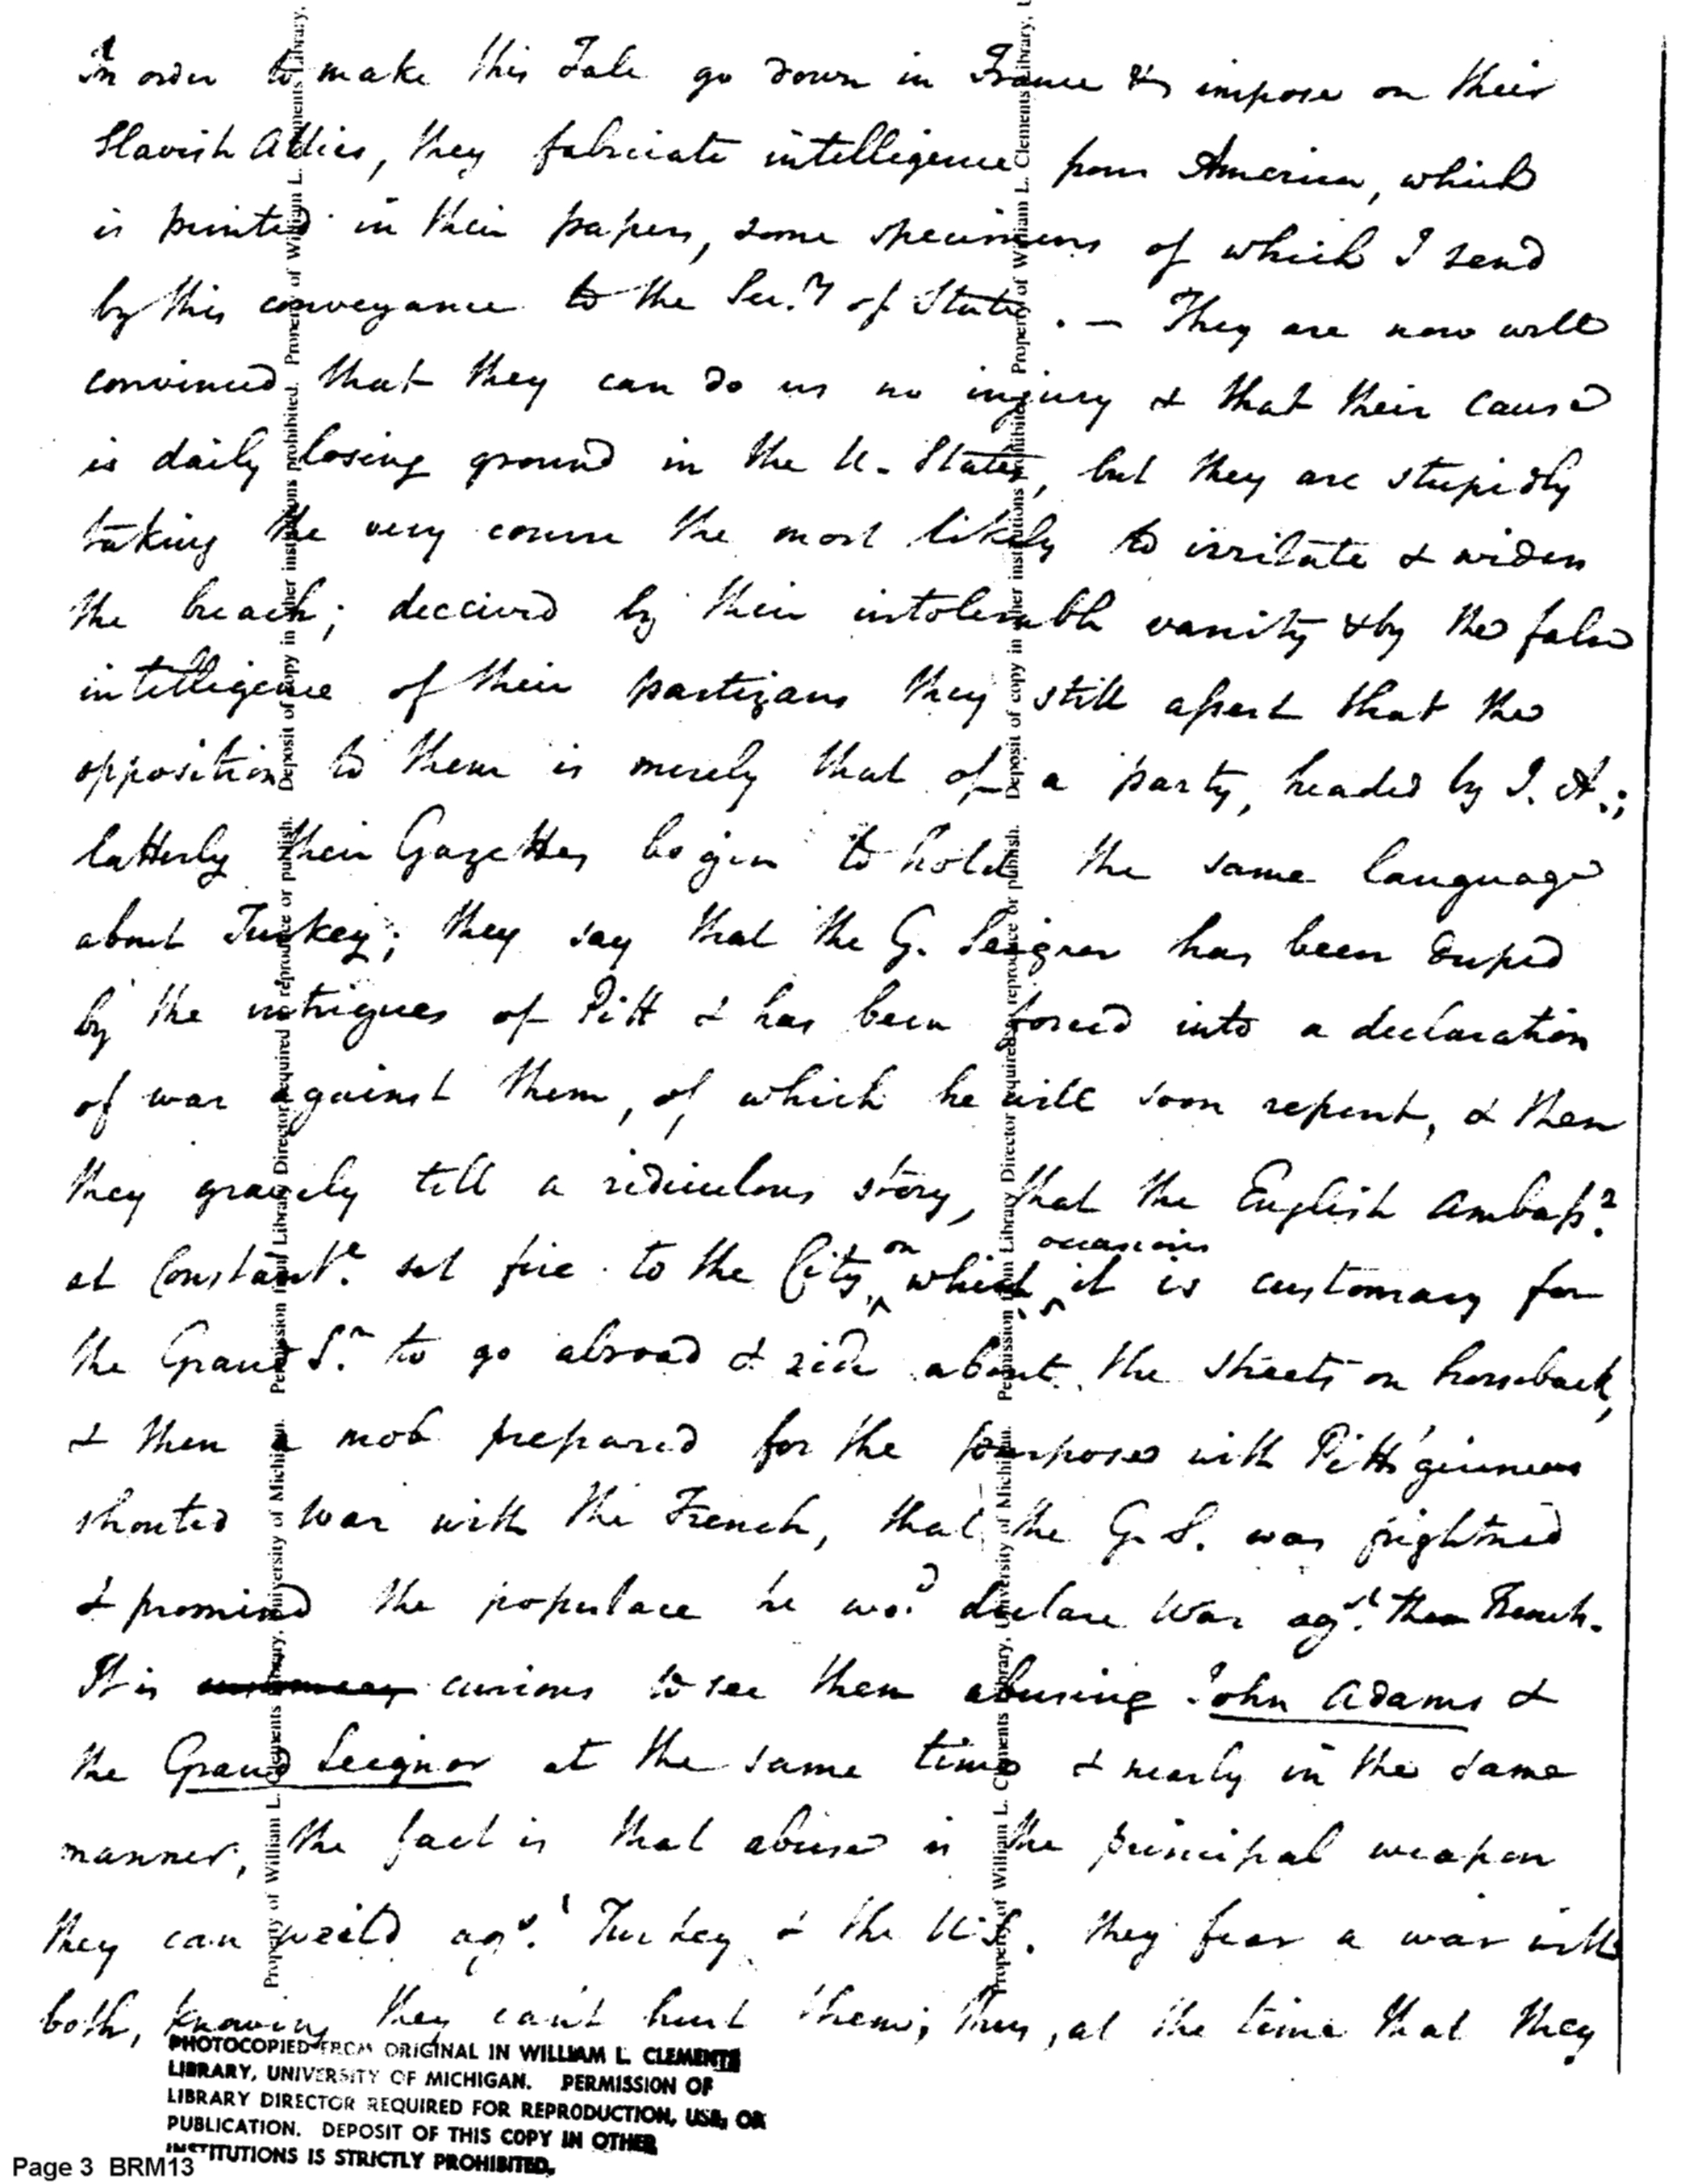 In order to make this Tale go down in France & impose on their
Slavish Allies, they fabricate intelligence from America, which
is printed in their papers, some specimens of which I send
by this conveyance to the Sec.ry of State. — They are now well
convinced that they can do us no injury & that their cause
is daily losing ground in the U. States, but they are stupidly
taking the very course the most likely to irritate & widen
the breach; deceived by their intolerable vanity & by the false
intelligence of their partizans they still assert that the
opposition to them is merely that of a party, headed by J. A.;
latterly their Gazettes begin to hold the same language
about Turkey; they say that the G. Seignor has been duped
by the intrigues of Pitt & has been forced into a declaration
of war against them, of which he will soon repent, & then
they gravely tell a ridiculous story, that the English Ambass.r
at Constant.e set fire to the City, on which occasions it is customary for
the Grand S.r to go abroad & ride about the streets on horseback,
& then a mob prepared for the purpose with Pitt's guineas
shouted war with the French, that the G. S. was frightned
& promised the populace he wo.d declare War ag.st the French.
It is curious to see them abusing John Adams &
the Grand Seignor at the same time & nearly in the same
manner, the fact is that abuse is the principal weapon
they can weild ag.st Turkey & the U.S. they fear a war with
both, knowing they can't hurt them; thus, at the time that they
PHOTOCOPIED FROM ORIGINAL IN WILLIAM L. CLEMENTS
LIBRARY, UNIVERSITY OF MICHIGAN. PERMISSION OF
LIBRARY DIRECTOR REQUIRED FOR REPRODUCTION, USE, OR
PUBLICATION. DEPOSIT OF THIS COPY IN OTHER
INSTITUTIONS IS STRICTLY PROHIBITED.
Page 3 BRM13
Property of William L. Clements Library, University of Michigan. Permission from Library Director required to reproduce or publish. Deposit of copy in other institutions prohibited. Property of William L. Clements Library,
Property of William L. Clements Library, University of Michigan. Permission from Library Director required to reproduce or publish. Deposit of copy in other institutions prohibited. Property of William L. Clements Library,